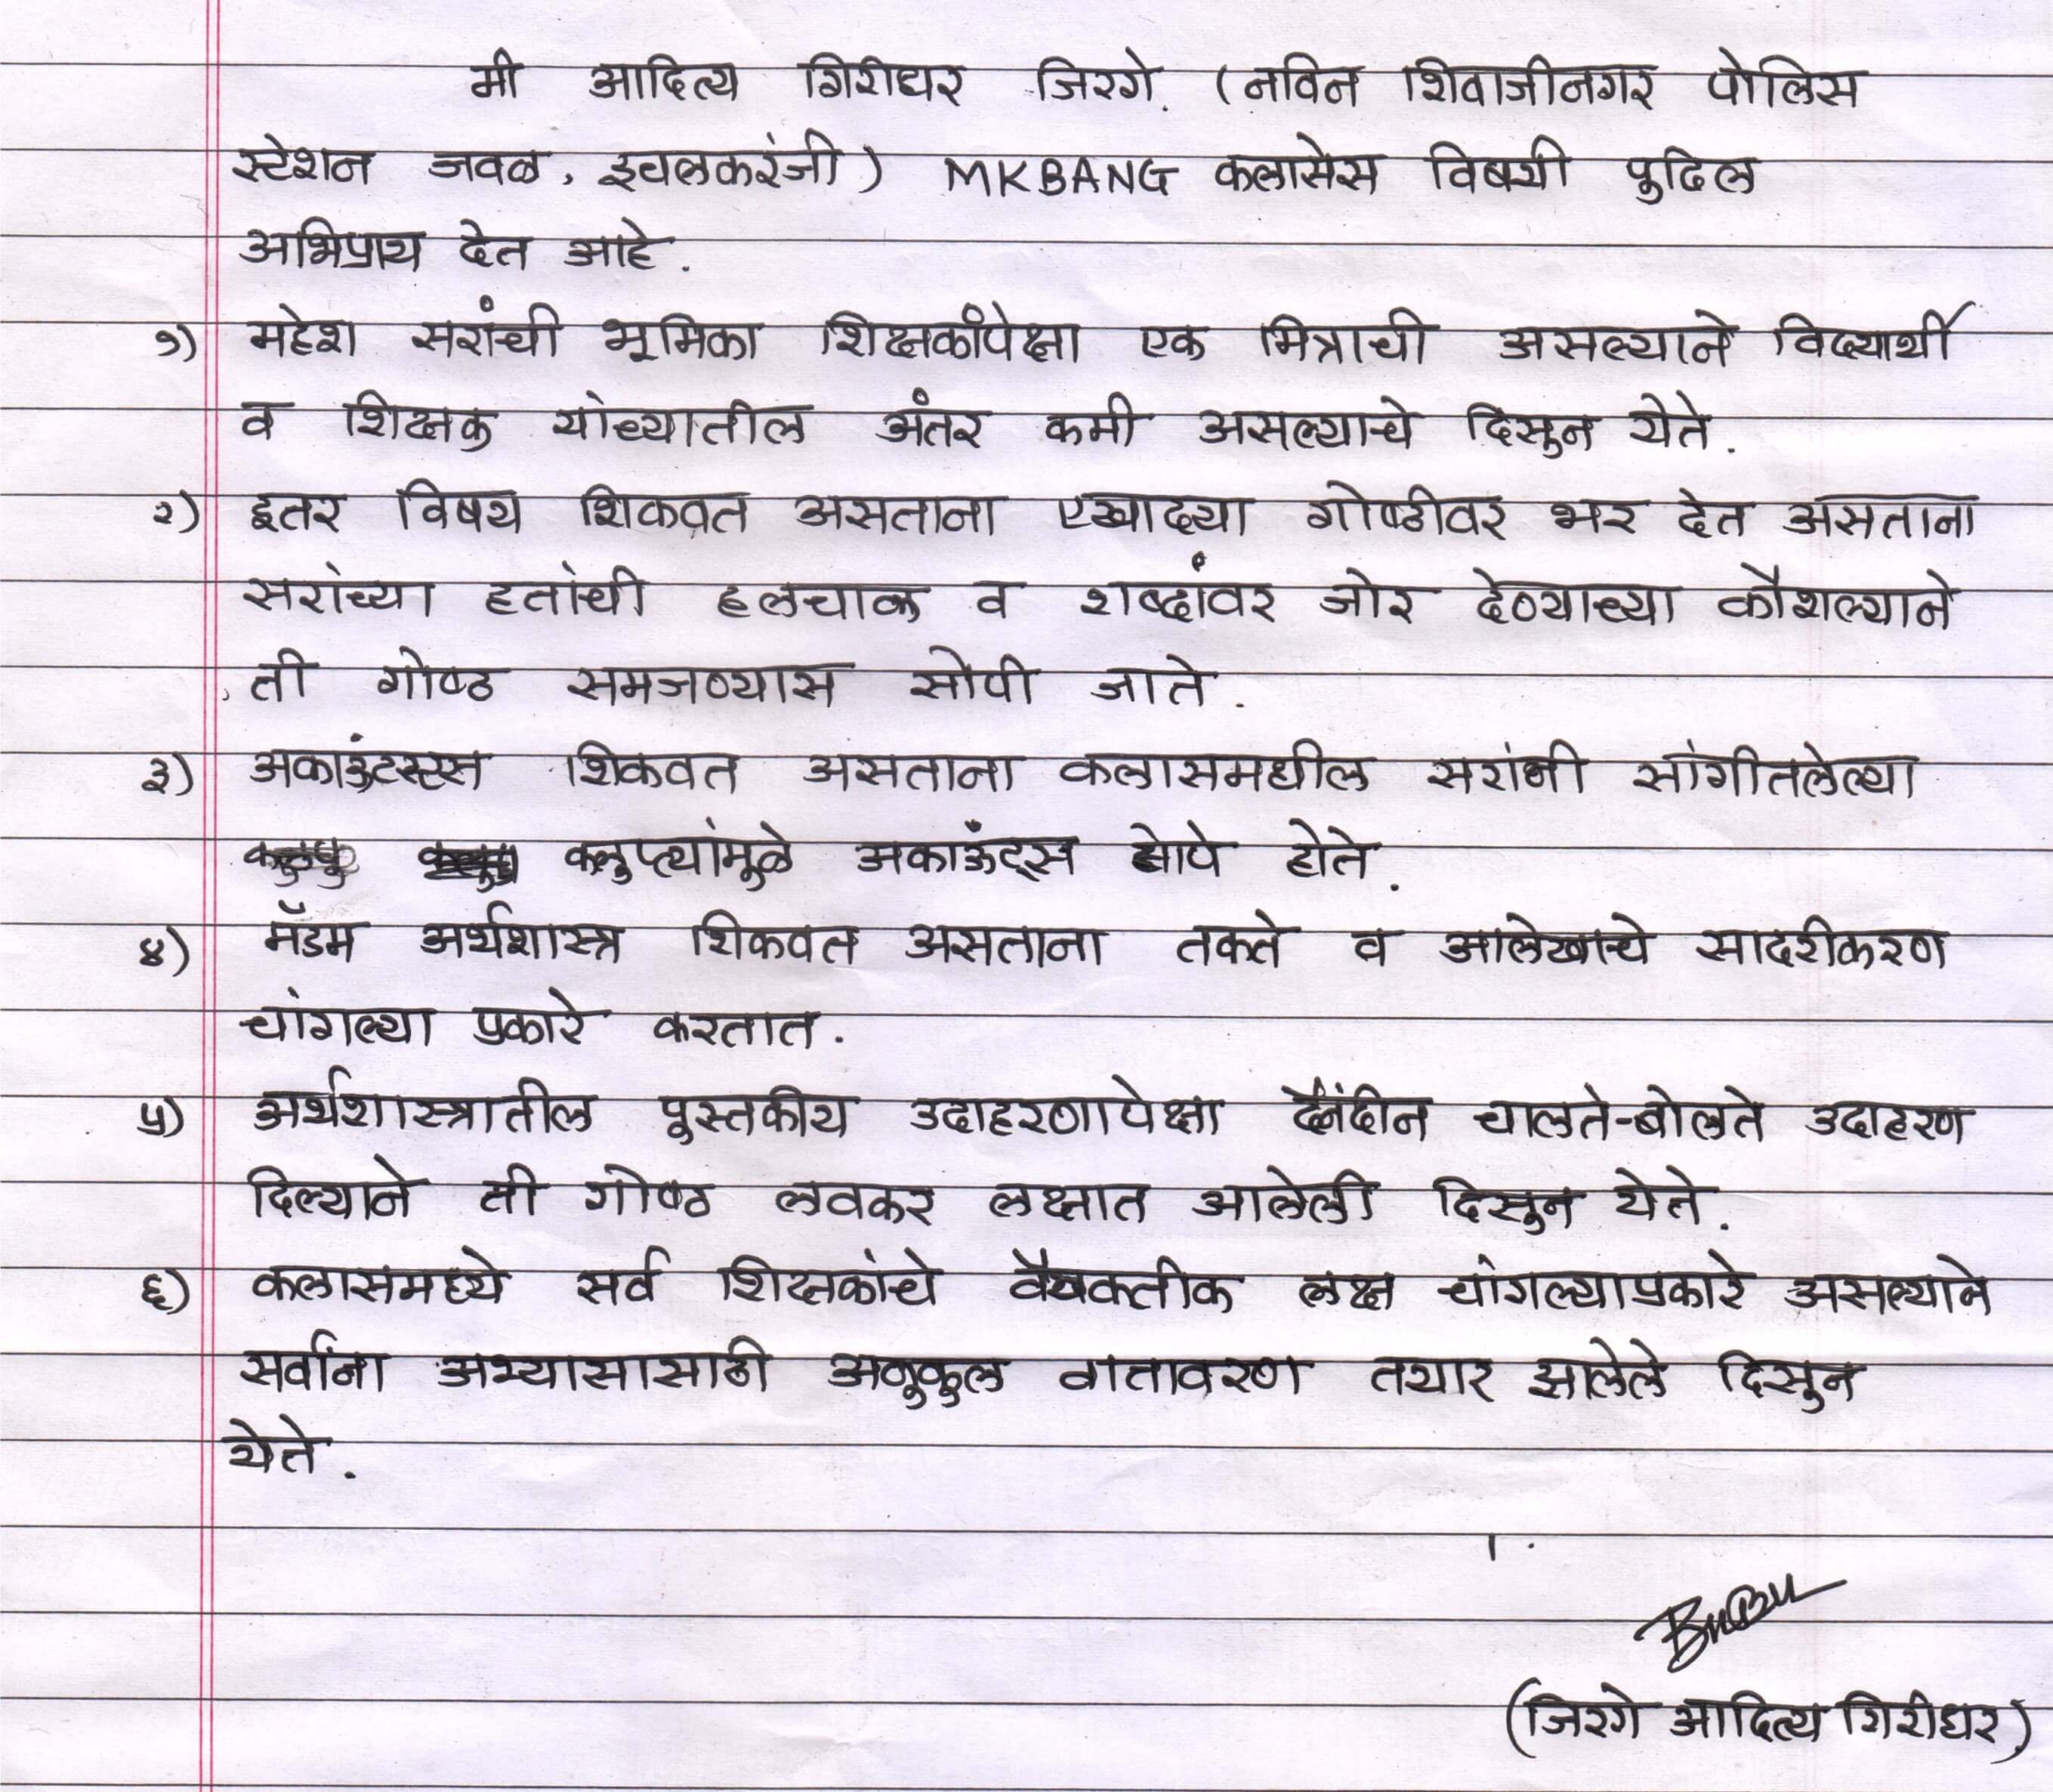 मी आदित्य गिरीधर जिरगे. (नविन शिवाजीनगर पोलिस
स्टेशन जवळ, इचलकरंजी) MKBANG क्लासेस विषयी पुढिल
अभिप्राय देत आहे.
१) महेश सरांची भूमिका शिक्षकांपेक्षा एक मित्राची असल्याने विद्यार्थी
व शिक्षक यांच्यातील अंतर कमी असल्याचे दिसुन येते.
२) इतर विषय शिकवत असताना एखाद्या गोष्ठीवर भर देत असताना
सरांच्या हतांची हलचाल व शब्दांवर जोर देण्याच्या कौशल्याने
ती गोष्ठ समजण्यास सोपी जाते.
३) अकाऊंटस्टस शिकवत असताना क्लासमधील सरांनी सांगीतलेल्या
क्लुप्त्यांमुळे अकाऊंट्स सोपे होते.
४) मॅडम अर्थशास्त्र शिकवत असताना तक्ते व आलेखाचे सादरीकरण
चांगल्या प्रकारे करतात.
५) अर्थशास्त्रातील पुस्तकीय उदाहरणापेक्षा दैनंदीन चालते-बोलते उदाहरण
दिल्याने ती गोष्ठ लवकर लक्षात आलेली दिसुन येते.
६) क्लासमध्ये सर्व शिक्षकांचे वैयक्तीक लक्ष चांगल्याप्रकारे असल्याने
सर्वांना अभ्यासासाठी अनुकुल वातावरण तयार झालेले दिसुन
येते.
(जिरगे आदित्य गिरीधर)